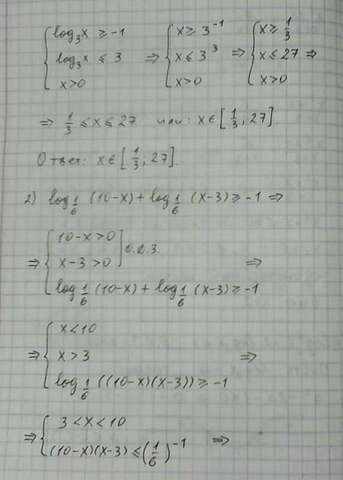 { log₃x ≥ -1 ⇒ { x ≥ 3⁻¹ ⇒ { x ≥ 1/3 ⇒
{ log₃x ≤ 3 { x ≤ 3³ { x ≤ 27
{ x>0 { x>0 { x>0
⇒ 1/3 ≤ x ≤ 27 или: x∈[1/3; 27]
Ответ: x∈[1/3; 27].
2) log_{1/6} (10-x) + log_{1/6} (x-3) ≥ -1 ⇒
⇒ { 10-x>0 ] О.Д.З. ⇒
{ x-3>0
{ log_{1/6} (10-x) + log_{1/6} (x-3) ≥ -1
⇒ { x<10 ⇒
{ x>3
{ log_{1/6} ((10-x)(x-3)) ≥ -1
⇒ { 3<x<10 ⇒
{ (10-x)(x-3) ≤ (1/6)⁻¹